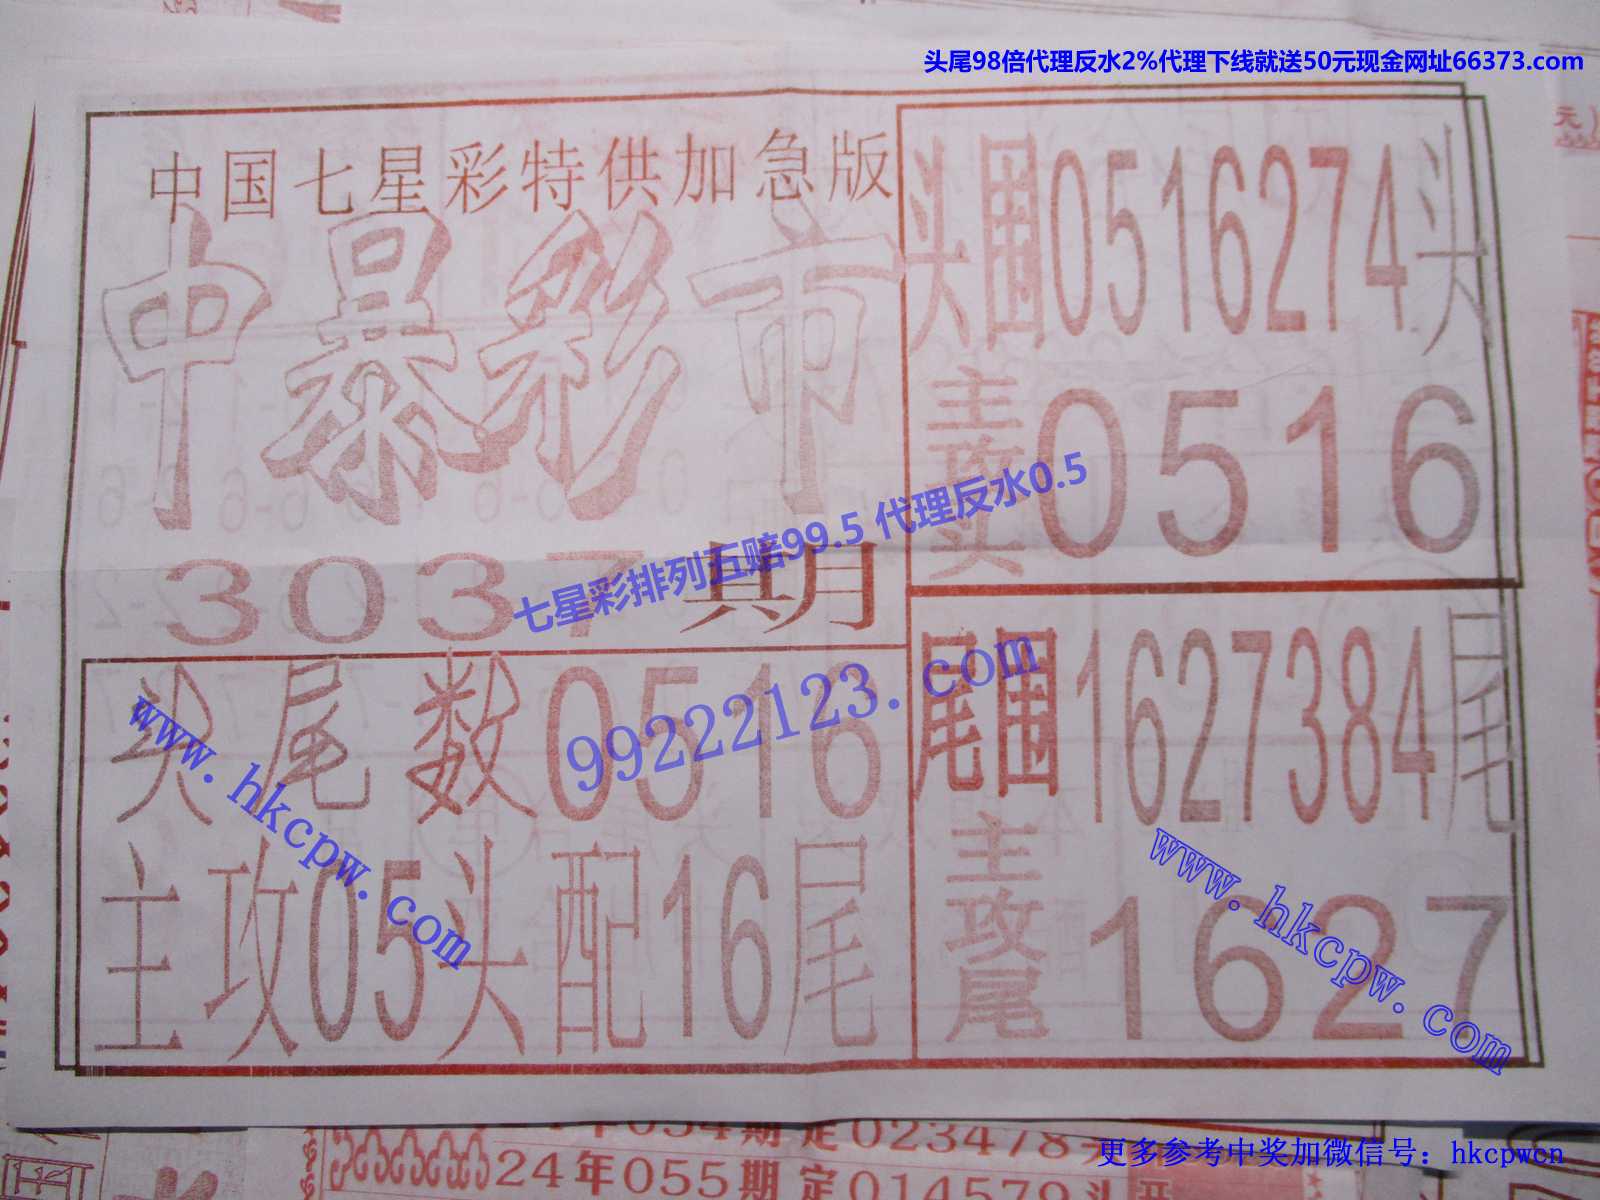 头尾98倍代理反水2%代理下线就送50元现金网址66373.com
元）
中国七星彩特供加急版
中暴彩市
3037期
头围0516274头
主攻头0516
七星彩排列五赔99.5 代理反水0.5
99222123.com
尾围1627384尾
主攻尾1627
头尾数0516
主攻05头配16尾
www.hkcpw.com
www.hkcpw.com
年054期定023478头
24年055期定014579头开
更多参考中奖加微信号：hkcpwcn